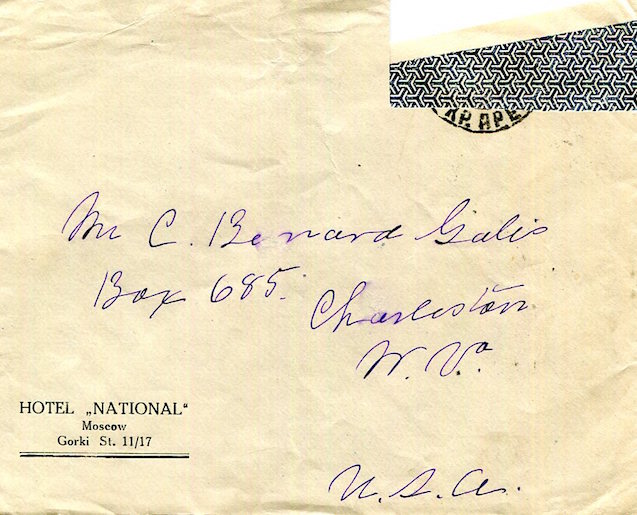 КР. АРЕ
Mr C. Benard Galis
Box 685.
Charleston
W. Va.
HOTEL „NATIONAL“
Moscow
Gorki St. 11/17
U.S.A.